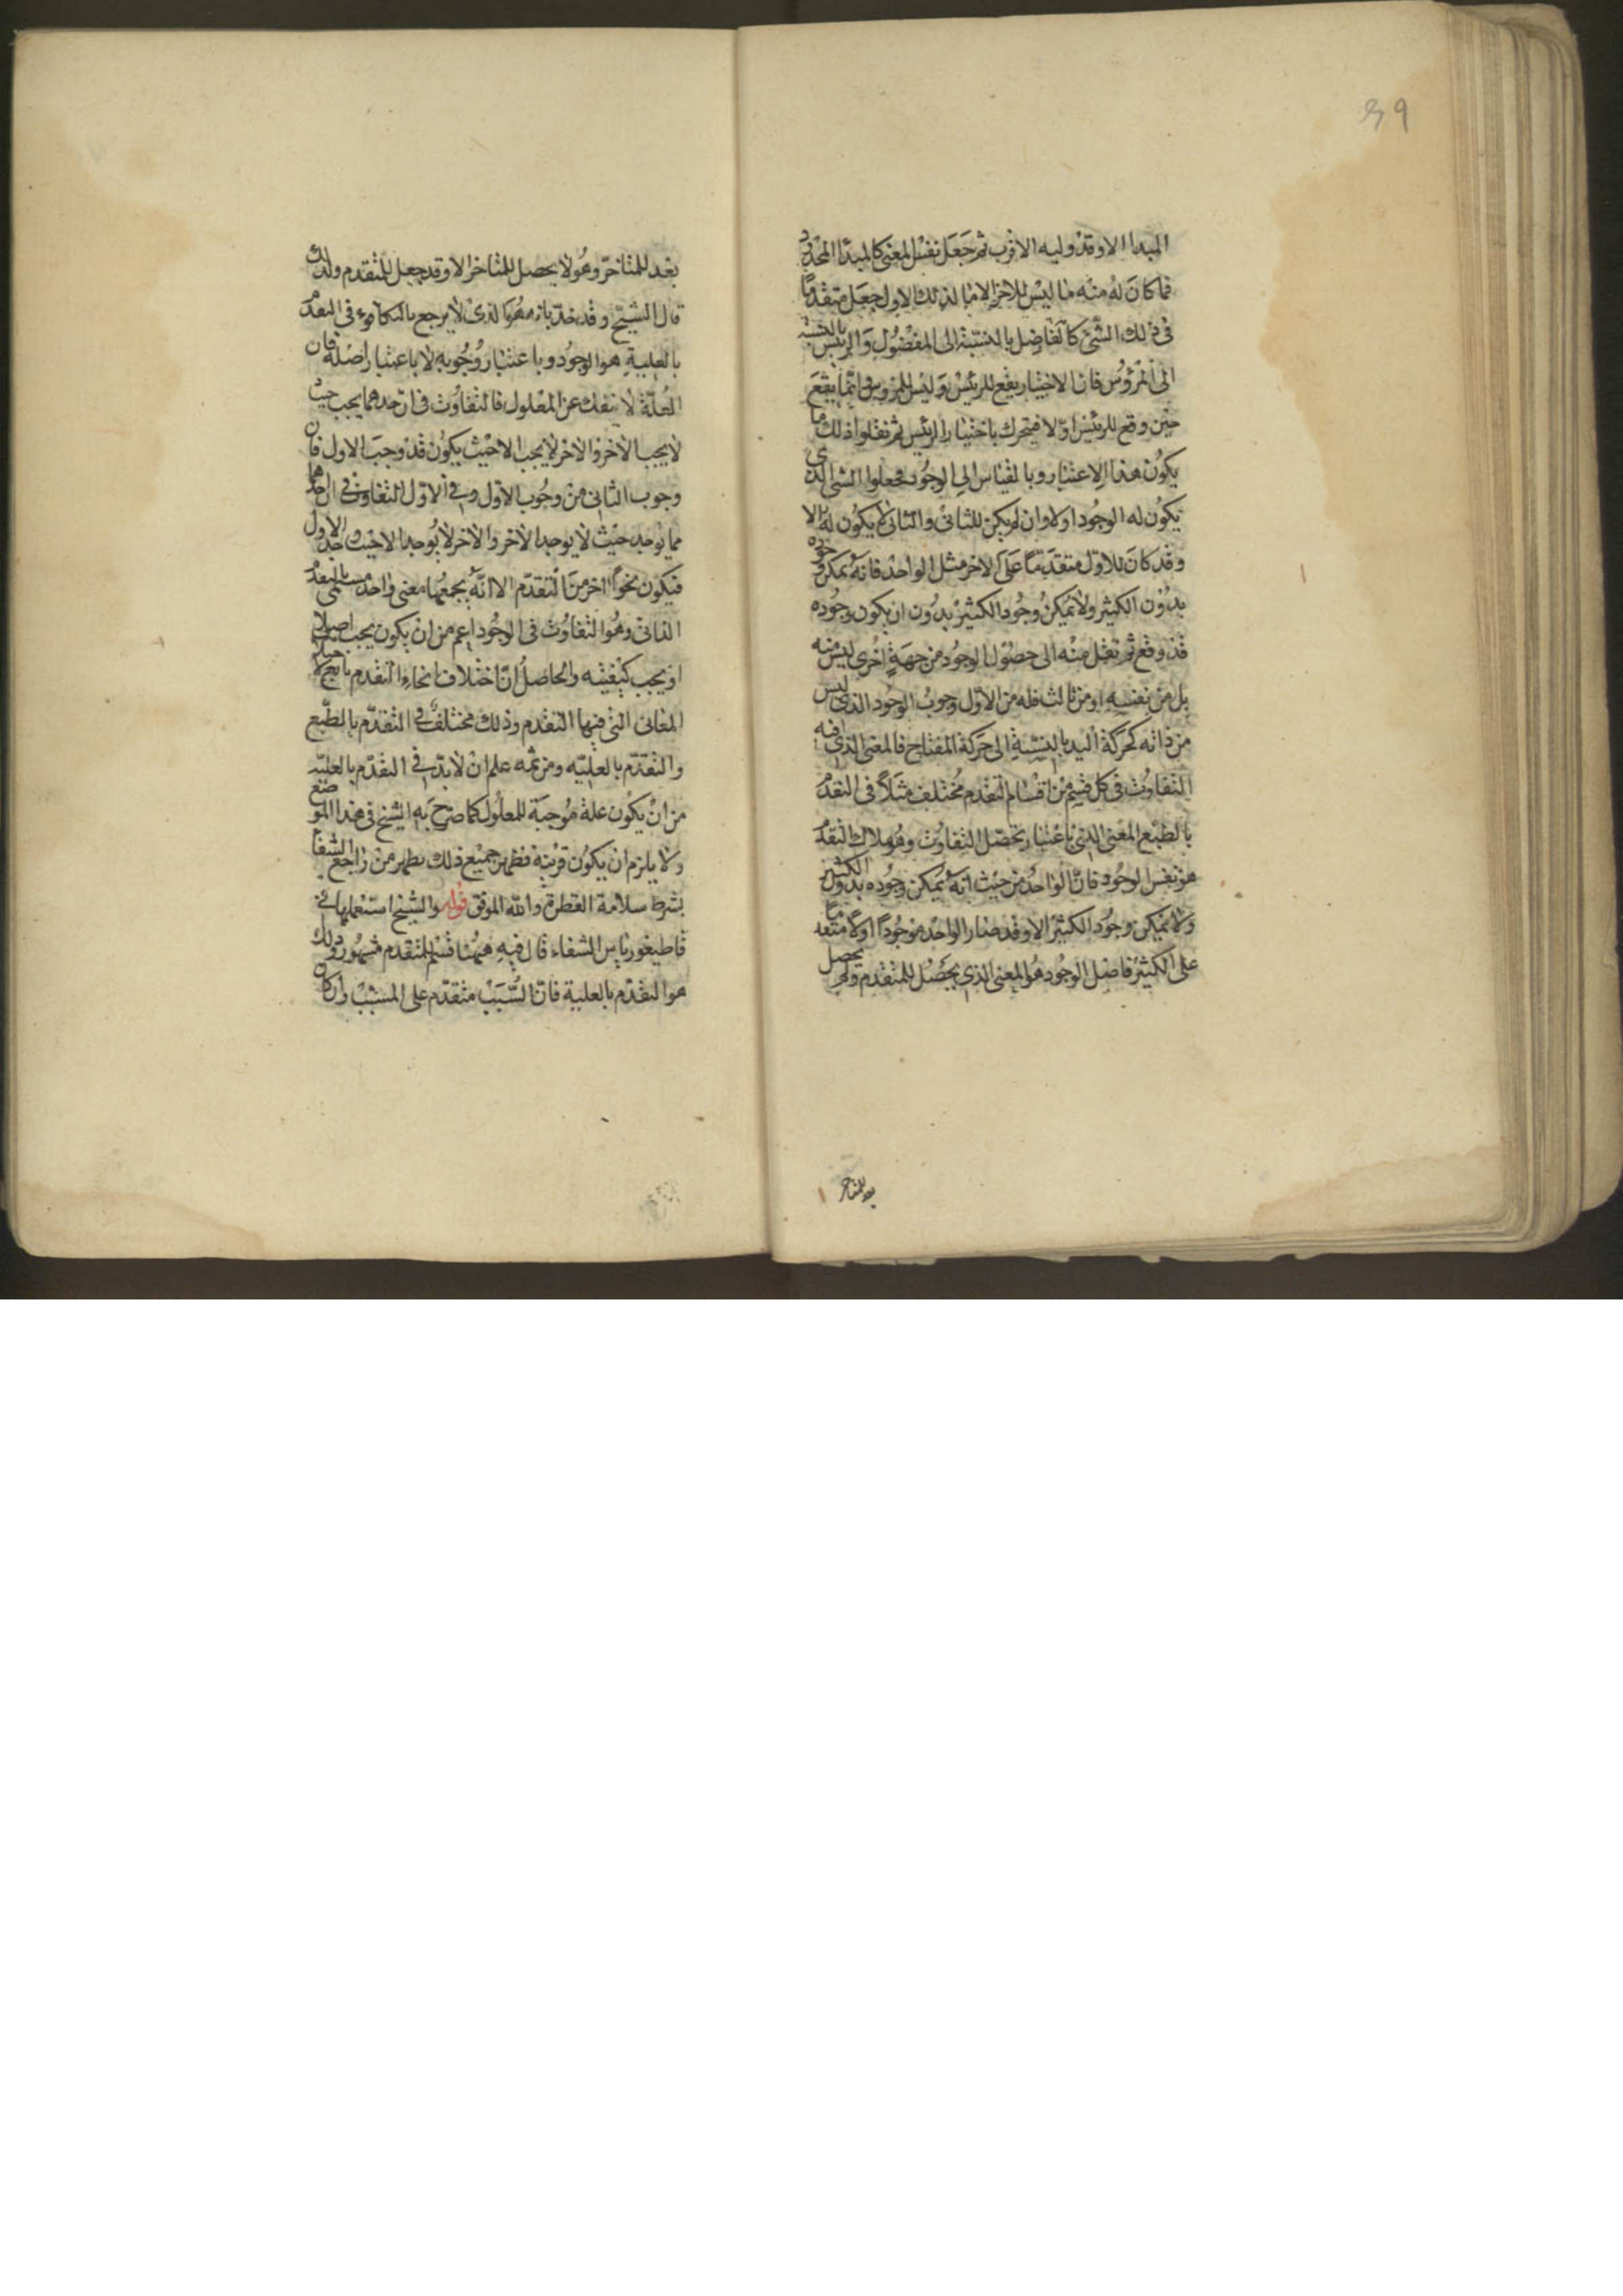 39
المبدا الا وقد وليه الاقرب ثم جعل نفس المعنى كالمبدا المحدود
فما كان له منه ما ليس للاخر الا ما لذلك الاول جعل متقدما
فى ذلك الشئ كالفاضل بالنسبة الى المفضول والرئيس بالنسبة
الى المرؤس فان الاختيار يقع للرئيس وليس للمرؤس وانما يقع
حين وقع للرئيس اولا فيتحرك باختيار الرئيس ثم نقلوا ذلك ما
يكون هذا الاعتبار وبالقياس الى الوجود فجعلوا الشى الذى
يكون له الوجود اولا وان لم يكن للثانى والثانى لا يكون له الا
وقد كان للاول متقدما على الاخر مثل الواحد فانه يمكن وجوده
بدون الكثير ولا يمكن وجود الكثير بدون ان يكون وجوده
قد وقع ثم نقل منه الى حصول الوجود من جهة اخرى ليس منه
بل من نفسه او من ثالث فله من الاول وجوب الوجود الذى ليس
من ذاته كحركة اليد بالنسبة الى حركة المفتاح فالمعنى الذى فيه
التفاوت فى كل قسم من اقسام التقدم مختلف مثلا فى التقدم
بالطبع المعنى الذى باعتبار تحصل التفاوت وهو ملاك التقدم
هو نفس الوجود فان الواحد من حيث انه يمكن وجوده بدون الكثير
ولا يمكن وجود الكثير الا وقد صار الواحد موجودا اولا متقدما
على الكثير فاصل الوجود هو المعنى الذى يحصل للمتقدم ولم يحصل
بعد للمتاخر
بعد للمتاخر وهو لا يحصل للمتاخر الا وقد حصل للمتقدم ولذلك
قال الشيخ وقد حد بانه هو الذى لا يرجع بالتكافوء فى التقدم
بالعلية هو الوجود وباعتبار وجوبه لا باعتبار اصله فان
العلة لا تنفك عن المعلول فالتفاوت فى ان احدهما يجب حيث
لا يجب الاخر والاخر لا يجب الا حيث يكون قد وجب الاول فان
وجوب الثانى من وجوب الاول وفى الاول التفاوت فى ان احدهما
مما يوجد حيث لا يوجد الاخر والاخر لا يوجد الا حيث وجد الاول
فيكون نحوا اخر من التقدم الا انه يجمعهما معنى واحد يسمى بالتقدم
الذاتى وهو التفاوت فى الوجود اعم من ان يكون يجب اصوله
او يجب كيفيته والحاصل ان اختلاف انحاء التقدم تابع لاختلاف
المعانى التى فيها التقدم وذلك مختلف فى التقدم بالطبع
والتقدم بالعليه ومن ثمه علم ان لا بد فى التقدم بالعليه
من ان يكون علة موجبة للمعلول كما صرح به الشيخ فى هذا الموضع
ولا يلزم ان يكون قريبة فظهر جميع ذلك يظهر من راجع الشفا
بشرط سلامة الفطرة والله الموفق قوله والشيخ استعملها فى
قاطيغورياس الشفاء قال فيه ههنا قسم للتقدم مشهور وذلك
هو التقدم بالعلية فان السبب متقدم على المسبب وان كان